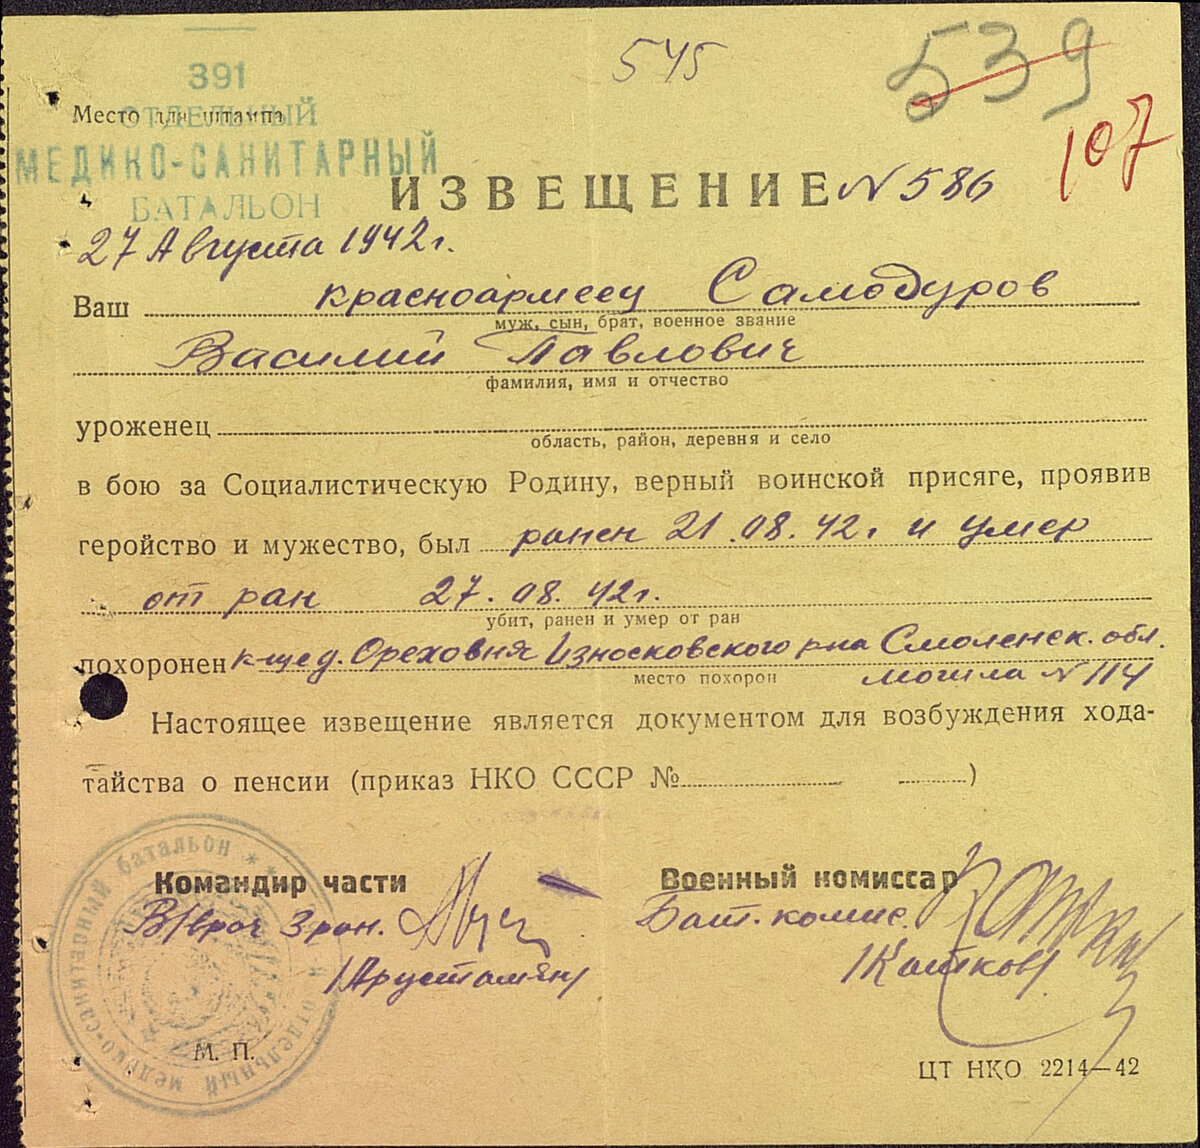 545
539
107
391
Место для штампа
ОТДЕЛЬНЫЙ
МЕДИКО-САНИТАРНЫЙ
БАТАЛЬОН
ИЗВЕЩЕНИЕ N 586
27 Августа 1942 г.
Ваш красноармеец Самодуров
муж, сын, брат, военное звание
Василий Павлович
фамилия, имя и отчество
уроженец
область, район, деревня и село
в бою за Социалистическую Родину, верный воинской присяге, проявив
геройство и мужество, был ранен 21.08.42 г и умер
от ран 27.08.42 г.
убит, ранен и умер от ран
похоронен к-ще д. Ореховня Износковского р-на Смоленск. обл.
место похорон могила N 114
Настоящее извещение является документом для возбуждения хода-
тайства о пенсии (приказ НКО СССР № )
Командир части
В/врач 3 ран.
/Арустамян/
Военный комиссар
Бат. комис.
/Катков/
отдельный медико-санитарный батальон
М. П.
ЦТ НКО 2214—42